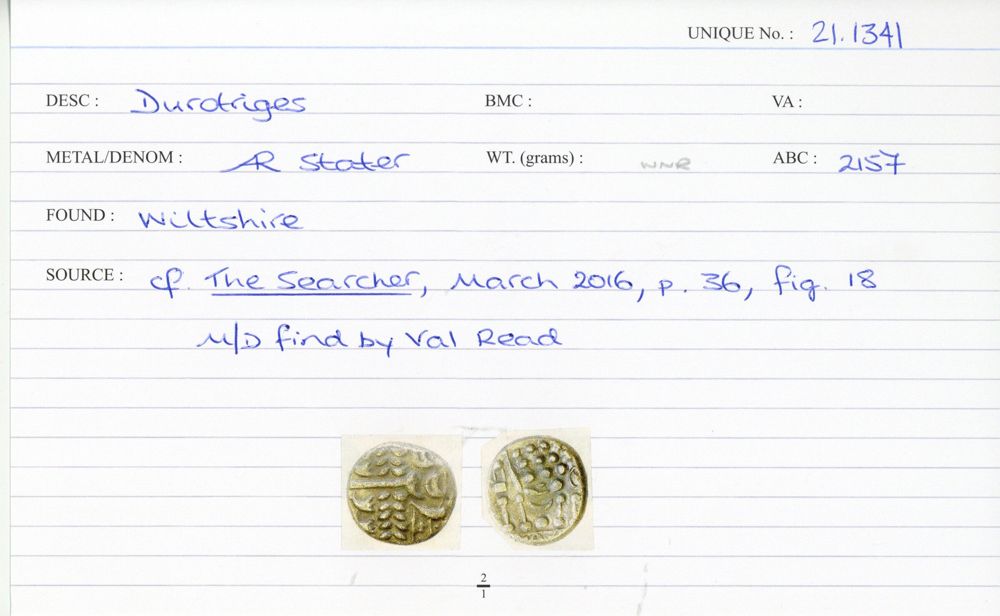 UNIQUE No. : 21.1341
DESC : Durotriges BMC : VA :
METAL/DENOM : AR Stater WT. (grams) : WNR ABC : 2157
FOUND : Wiltshire
SOURCE : cf. The Searcher, March 2016, p. 36, fig. 18
M/D find by Val Read
2
1